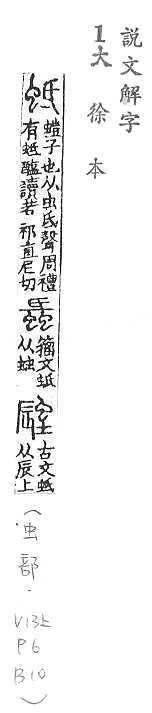 説文解字
1大徐本
蚳 螘子也从虫氐聲周禮
有蚳醢讀若祁直尼切
籒文蚳
从䖵
古文蚳
从辰土
（虫部．
V13上
P6
B10）